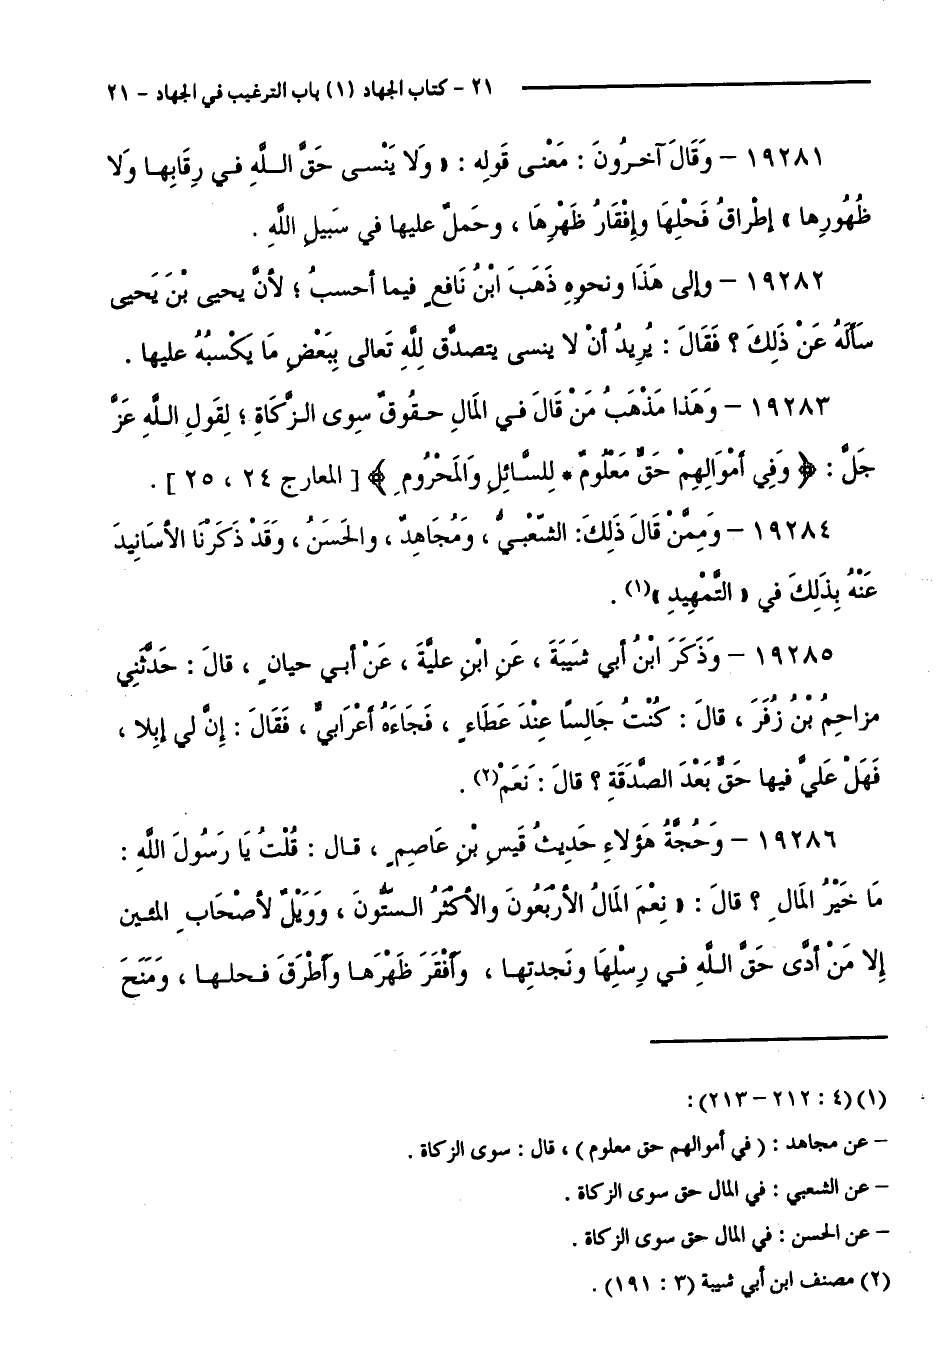 ٢١ - كتاب الجهاد (١) باب الترغيب في الجهاد - ٢١
١٩٢٨١ - وَقَالَ آخرُونَ : مَعْنى قَولِه : « وَلا يَنْسى حَقَّ اللَّهِ في رِقَابِها وَلا
ظُهُورِها » إطْراقُ فَحْلِهَا وإفْقَارُ ظَهْرِهَا ، وحَملٌ عليها في سَبيلِ اللَّهِ .
١٩٢٨٢ - وإلى هَذَا ونحوِهِ ذَهَبَ ابْنُ نَافعٍ فيما أحسبُ ؛ لأنَّ يحيى بْنَ يَحيى
سَأَلَهُ عَنْ ذَلِكَ ؟ فَقَالَ : يُرِيدُ أنْ لا ينسى يتصدَّق لِلَّهِ تَعالى بِبَعْضِ مَا يَكْسبُهُ عليها .
١٩٢٨٣ - وَهَذا مَذْهَبُ مَنْ قَالَ في المَالِ حقُوقٌ سِوى الزَّكَاةِ ؛ لِقَولِ اللَّهِ عَزَّ
جَلَّ : ﴿ وَفِي أمْوَالِهِمْ حَقٌّ مَعْلُومٌ * لِلسَّائِلِ وَالمَحْرُومِ ﴾ [ المعارج ٢٤ ، ٢٥ ] .
١٩٢٨٤ - وَمِمَّنْ قَالَ ذَلِكَ: الشّعْبيُّ ، وَمُجَاهِدٌ ، والحَسَنُ ، وَقَدْ ذَكَرْنَا الأسَانِيدَ
عَنْهُ بِذَلِكَ في « التَّمْهِيدِ »(١) .
١٩٢٨٥ - وَذَكَرَ ابْنُ أبي شَيبَةَ ، عَنِ ابْنِ عليَّةَ ، عَنْ أبي حيانٍ ، قالَ : حَدَّثَنِي
مزاحِمُ بْنُ زُفَرَ ، قالَ : كُنْتُ جَالِسًا عِنْدَ عَطَاءٍ ، فَجَاءَهُ أعْرَابيٌّ ، فَقَالَ : إنَّ لي إبِلا ،
فَهَلْ عَليَّ فيها حَقٌّ بَعْدَ الصَّدَقَةِ ؟ قالَ : نَعَمْ(٢) .
١٩٢٨٦ - وَحُجَّةُ هَؤلاءِ حَدِيثُ قَيسِ بْنِ عَاصِمٍ ، قال : قُلْتُ يَا رَسُولَ اللَّهِ :
مَا خَيْرُ المَالِ ؟ قالَ : « نِعْمَ المَالُ الأرْبَعُونَ والأكْثَرُ السّتُّونَ ، وَوَيْلٌ لأصْحَابِ المئين
إلا مَنْ أدَّى حَقَّ اللَّهِ في رِسلِهَا ونَجدتِها ، وَأفْقَرَ ظَهْرَها وأطْرَقَ فَحلها ، وَمَنَحَ
(١)(٤ : ٢١٢ - ٢١٣):
- عن مجاهد : ( في أموالهم حق معلوم ) ، قال : سوى الزكاة .
- عن الشعبي : في المال حق سوى الزكاة .
- عن الحسن : في المال حق سوى الزكاة .
(٢) مصنف ابن أبي شيبة (٣ : ١٩١) .